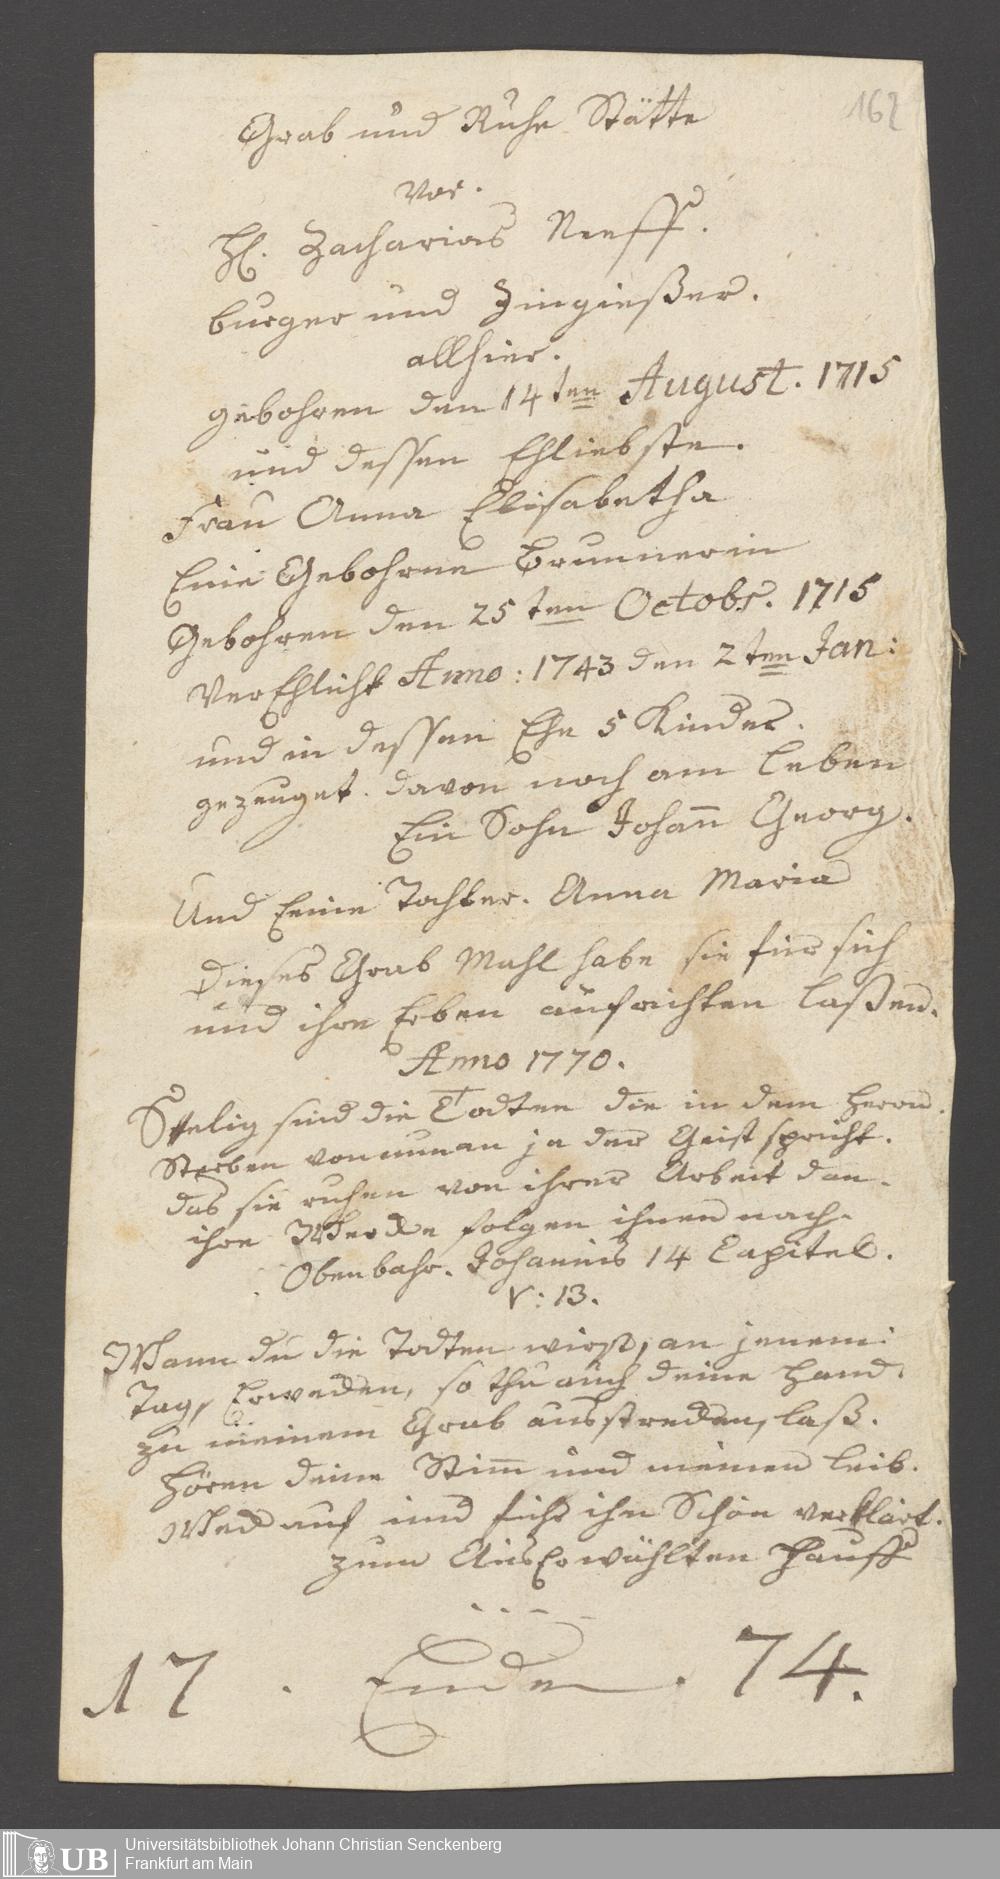 162
Grab und Ruhe Stätte
vor.
H. Zacharias Neeff.
burger und Zingießer.
allhier.
gebohren den 14ten August. 1715
und dessen Ehliebste.
Frau Anna Elisabetha
Eine Gebohrne Brunnerin
Gebohren den 25ten Octobr. 1715
VerEhlicht Anno: 1743 den 2ten Jan:
und in dessen Ehe 5 Kinder.
gezeuget. davon noch am leben
Ein Sohn Johann Georg.
Und Eeine Tochter. Anna Maria
dieses Grab Mahl habe sie für sich
und ihre Erben aufrichten laßen.
Anno 1770.
Seelig sind die Todten die in dem Herrn.
Sterben von nun an ja der Geist spricht.
das sie ruhen von ihrer Arbeit dan.
ihre Wercke folgen ihnen nach.
Obenbahr. Johannis 14 Capitel.
V: 13.
Wann du die Todten wirst, an jenem:
Tag, Erwecken, so thu auch deine Hand.
zu meinem Grab ausstrecken, laß.
Hören deine Stimm und meinen leib.
Weck auf und führ ihn Schön verklärt.
zum AusErwählten Hauff
17 . Ende . 74.
UB
Universitätsbibliothek Johann Christian Senckenberg
Frankfurt am Main